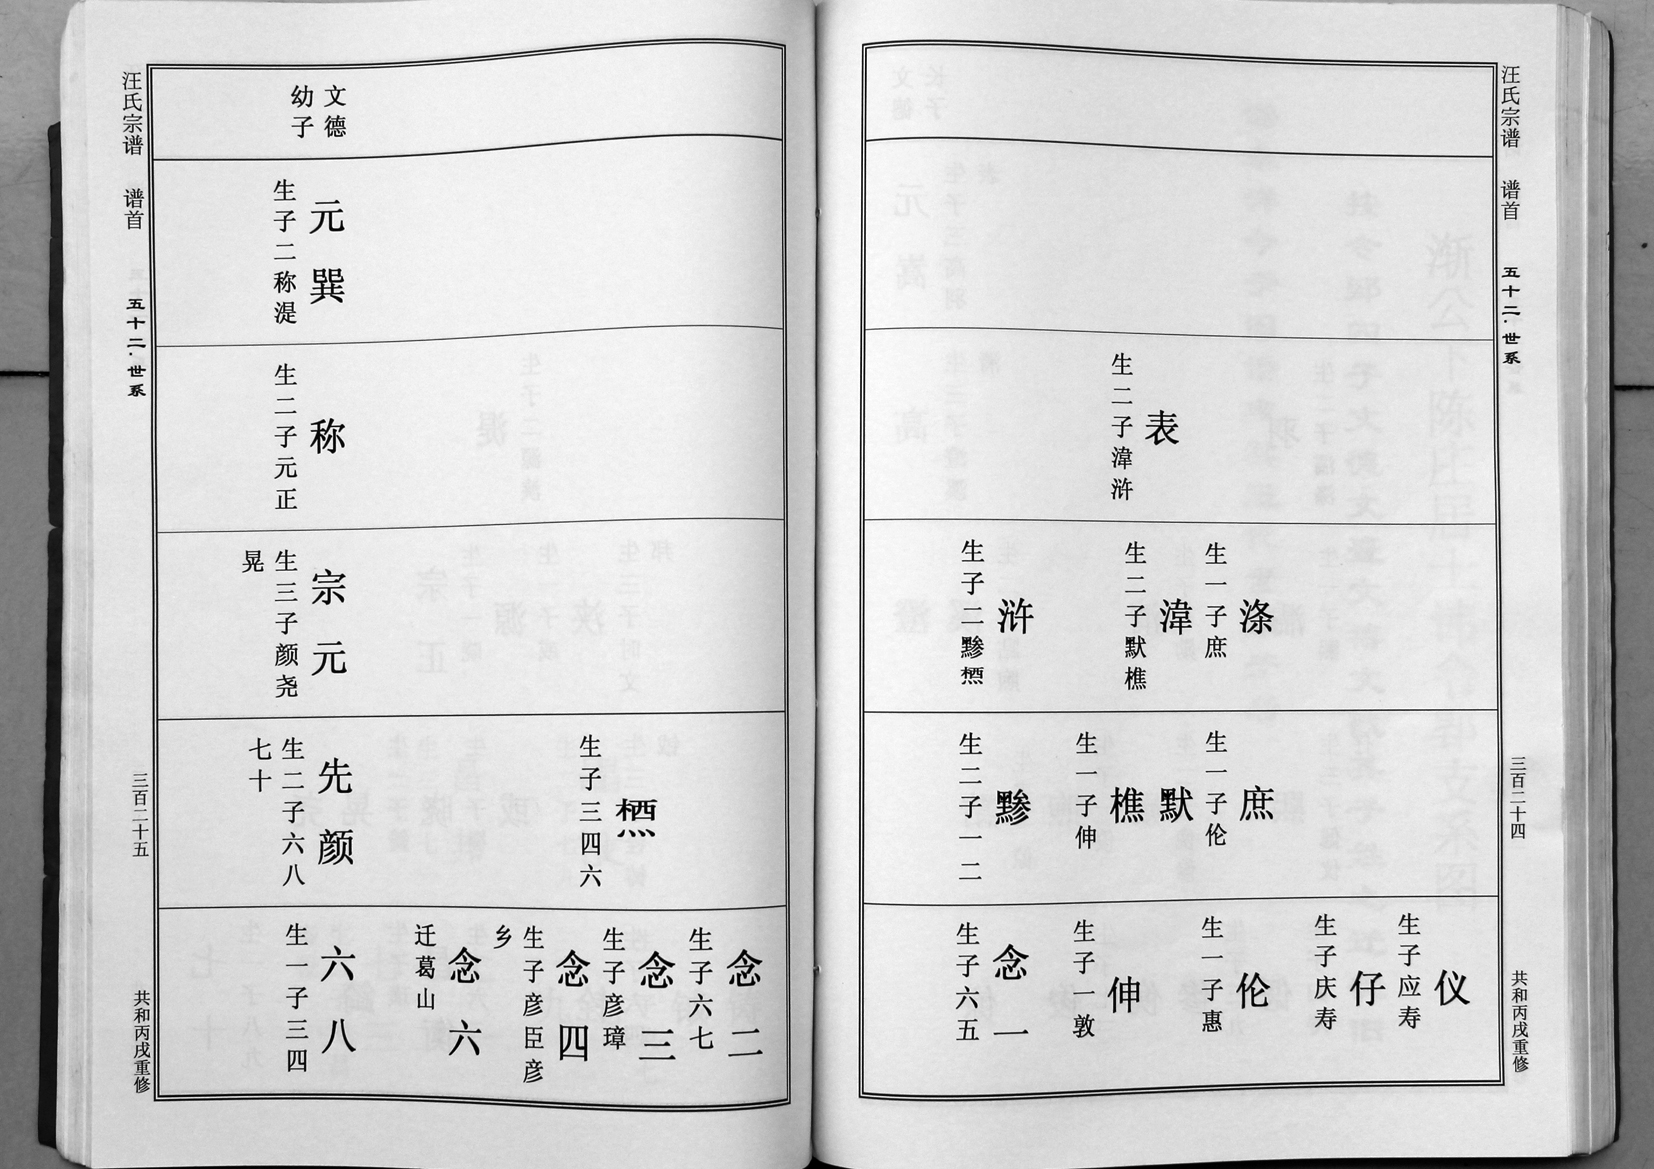 汪氏宗谱 谱首 五十二·世系 三百二十四 共和丙戌重修
表
生二子湋浒
涤
生一子庶
湋
生二子默樵
浒
生子二黪㷊
庶
生一子伦
默
樵
生一子伸
黪
生二子一二
仪
生子应寿
仔
生子庆寿
伦
生一子惠
伸
生子一敦
念一
生子六五
汪氏宗谱 谱首 五十二·世系 三百二十五 共和丙戌重修
文德
幼子
元巽
生子二称湜
称
生二子元正
宗元
生三子颜尧
晃
生子三四六
先颜
生二子六八
七十
念二
生子六七
念三
生子彦璋
念四
生子彦臣彦
乡
念六
迁葛山
六八
生一子三四